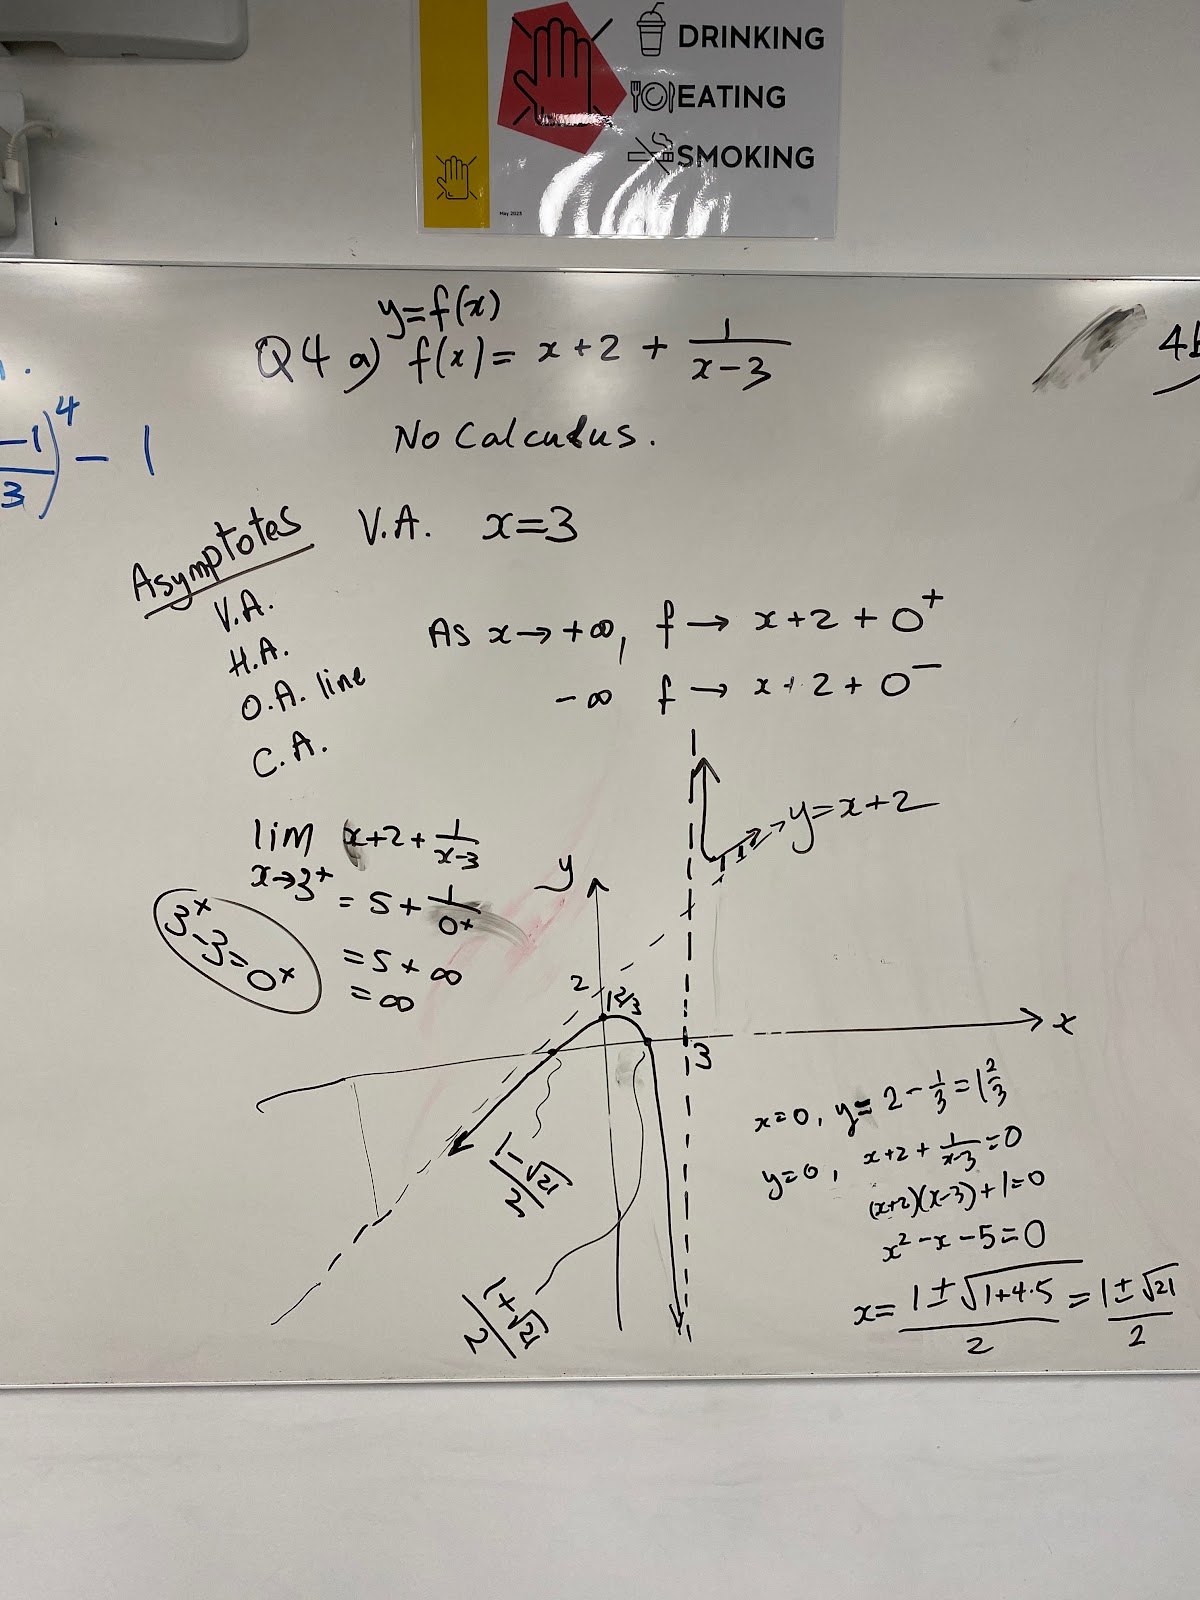 DRINKING
EATING
SMOKING
May 2023
y=f(x)
Q4 a) f(x)= x+2 + 1/(x-3)
4
-1)^4 - 1
3
No Calculus.
Asymptotes
V.A. x=3
V.A.
H.A.
O.A. line
C.A.
As x→+∞, f → x+2+0⁺
-∞ f → x+2+0⁻
lim x+2+1/(x-3)
x→3⁺
= 5+1/0⁺
= 5+∞
= ∞
3⁺-3=0⁺
y=x+2
y
2
1 2/3
3
x
(1-√21)/2
(1+√21)/2
x=0, y= 2 - 1/3 = 1 2/3
y=0, x+2+1/(x-3)=0
(x+2)(x-3)+1=0
x²-x-5=0
x= (1±√(1+4·5))/2 = (1±√21)/2